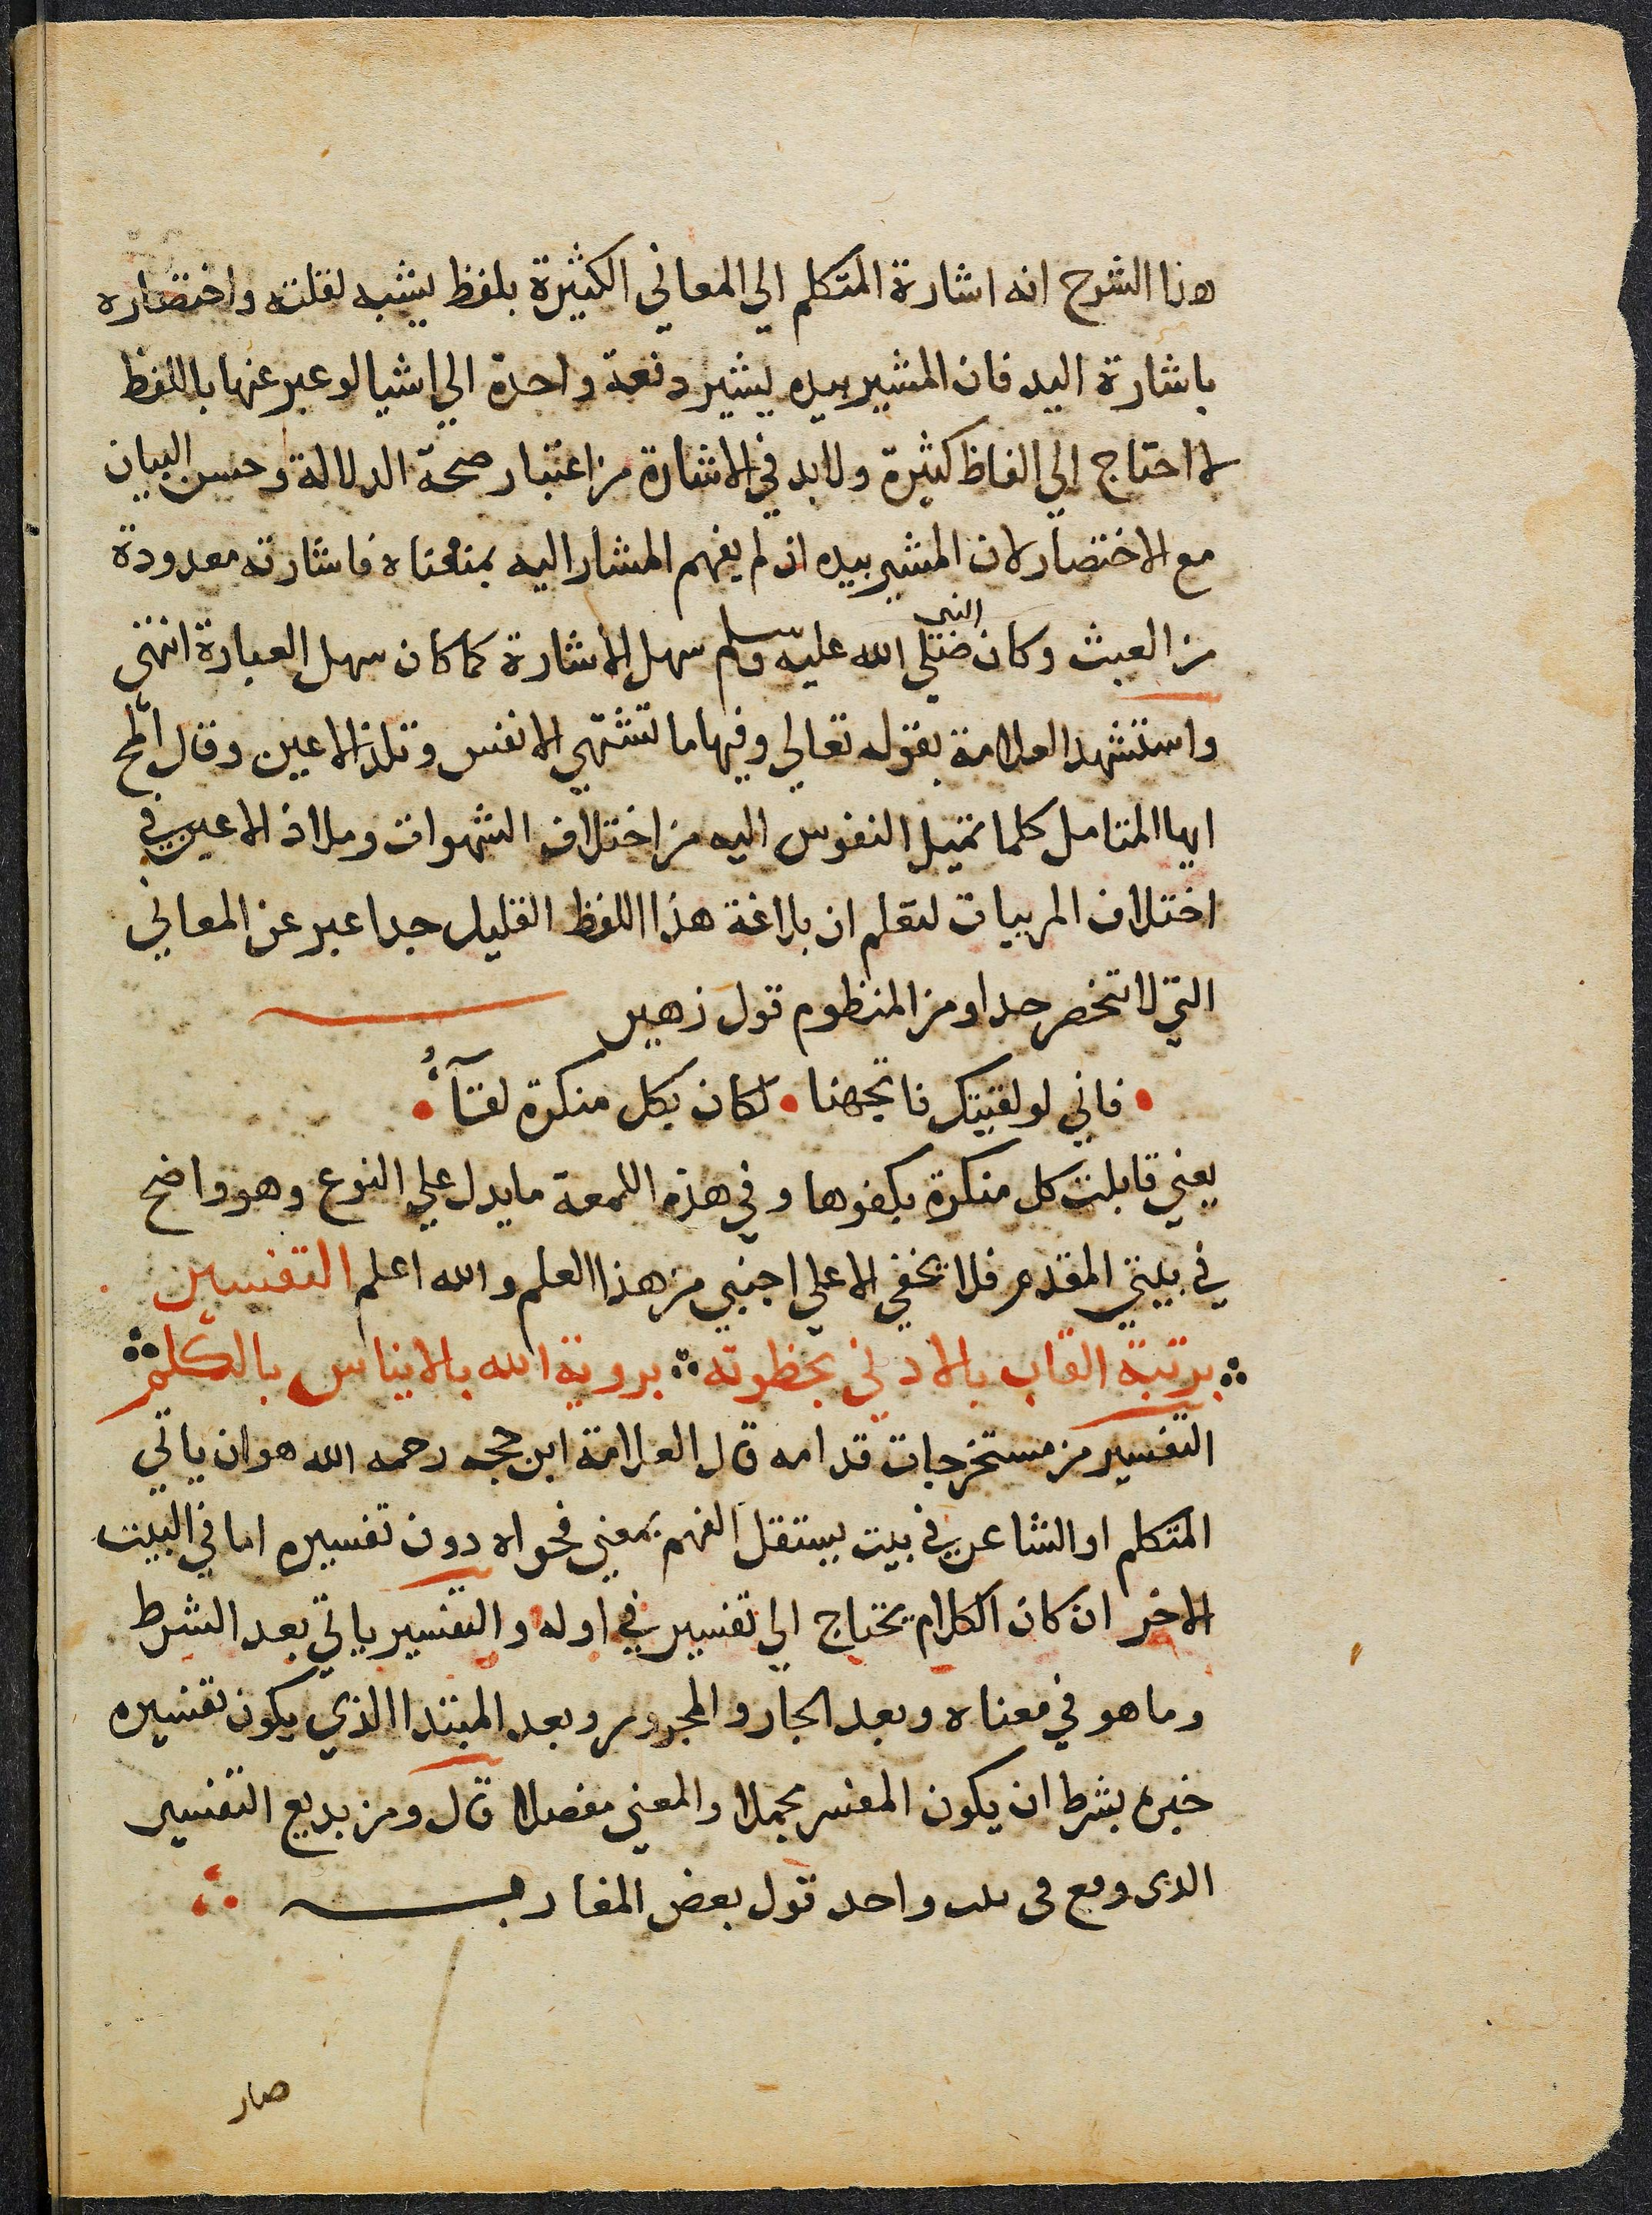 هذا الشرح انه اشارة المتكلم الي المعاني الكثيرة بلفظ يشبه لقلته واختصاره
باشارة اليد فان المشير بيده يشير دفعة واحدة الي اشيا لو عبر عنها باللفظ
لاحتاج الي الفاظ كثيرة ولابد في الاشارة من اعتبار صحة الدلالة وحسن البيان
مع الاختصار لان المشير بيده ان لم يفهم المشار اليه بمنعناه فاشارته معدودة
من العبث وكان النبي صلي الله عليه وسلم سهل الاشارة كما كان سهل العبارة انتهي
واستشهد العلامة بقوله تعالي وفيها ما تشتهي الانفس وتلذ الاعين وقال المح
ايها المتامل كلما تميل النفوس اليه من اختلاف الشهوات وملاذ الاعين في
اختلاف المرييات لتعلم ان بلاغة هذا اللفظ القليل جدا عبر عن المعاني
التي لا تنحصر حدا ومن المنظوم قول زهير
فاني لو لقيتك فاتجهنا • لكان بكل منكرة لقآءُ
يعني قابلت كل منكرة بكفوها وفي هذه اللمعة ما يدل علي النوع وهو واضح
في بيتي المقدم فلا يخفي الا علي اجنبي من هذا العلم والله اعلم التفسير
برتبة القاب بالادني بحظوته ∴ بروية الله بالايناس بالكلم
التفسير من مستخرجات قدامه قال العلامة ابن حجه رحمه الله هو ان ياتي
المتكلم او الشاعر في بيت يستقل الفهم بمعني فحواه دون تفسيره اما في البيت
الاخر ان كان الكلام يحتاج الي تفسير في اوله والتفسير ياتي بعد الشرط
وما هو في معناه وبعد الجار والمجرور وبعد المبتدا الذي يكون تفسيره
خبره بشرط ان يكون المفسر مجملا والمعني مفصلا قال ومن بديع التفسير
الذي وقع في بيت واحد قول بعض المغاربه
صار